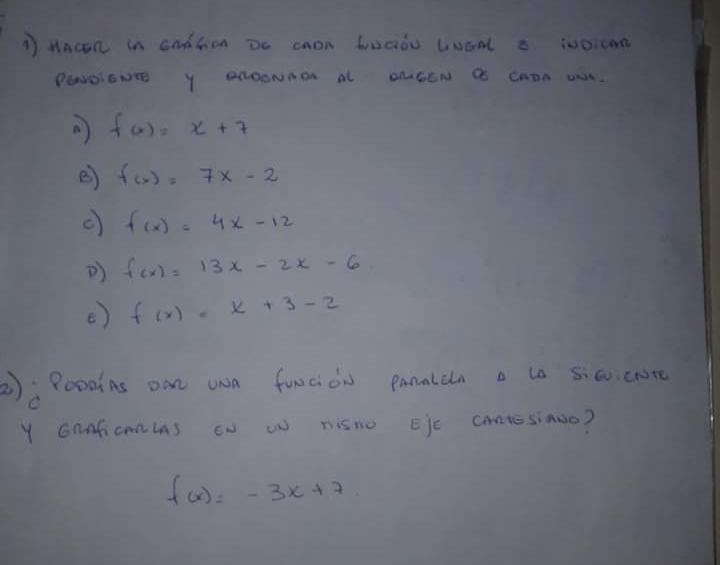 1) HACER LA GRÁFICA DE CADA FUNCIÓN LINEAL E INDICAR
PENDIENTE Y ORDENADA AL ORIGEN DE CADA UNA.
A) f(x)= x + 7
B) f(x)= 7x - 2
C) f(x) = 4x - 12
D) f(x)= 13x - 2x - 6.
E) f(x) = x + 3 - 2
2) ¿PODRÍAS DAR UNA FUNCIÓN PARALELA A LA SIGUIENTE
Y GRAFICARLAS EN UN MISMO EJE CARTESIANO?
f(x)= - 3x + 7.